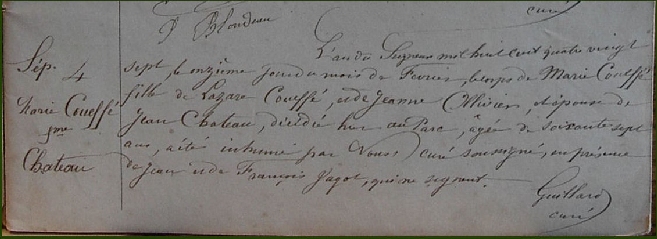 P. Blondeau
curé
Sép. 4
Marie Coueffé
fme
Chateau
L'an du Seigneur mil huit cent quatre vingt
sept, le onzième jour du mois de Février, le corps de Marie Coueffé
fille de Lazare Coueffé, et de Jeanne Ollivier, et épouse de
Jean Chateau, décédée hier au Parc, âgée de soixante sept
ans, a été inhumé par Nous, curé soussigné, en présence
de Jean et de François Jagot, qui ne signent.
Guillard
curé